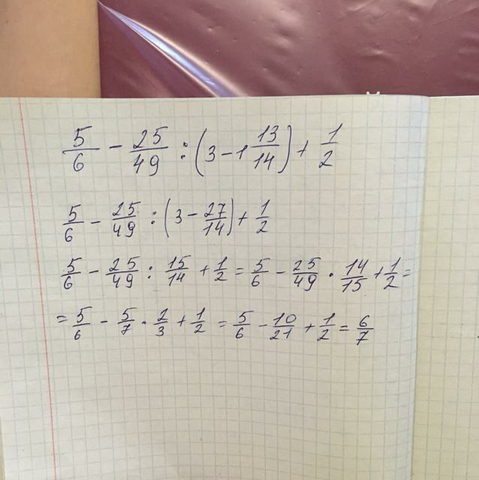 5/6 − 25/49 : (3 − 1 13/14) + 1/2
5/6 − 25/49 : (3 − 27/14) + 1/2
5/6 − 25/49 : 15/14 + 1/2 = 5/6 − 25/49 · 14/15 + 1/2 =
= 5/6 − 5/7 · 2/3 + 1/2 = 5/6 − 10/21 + 1/2 = 6/7